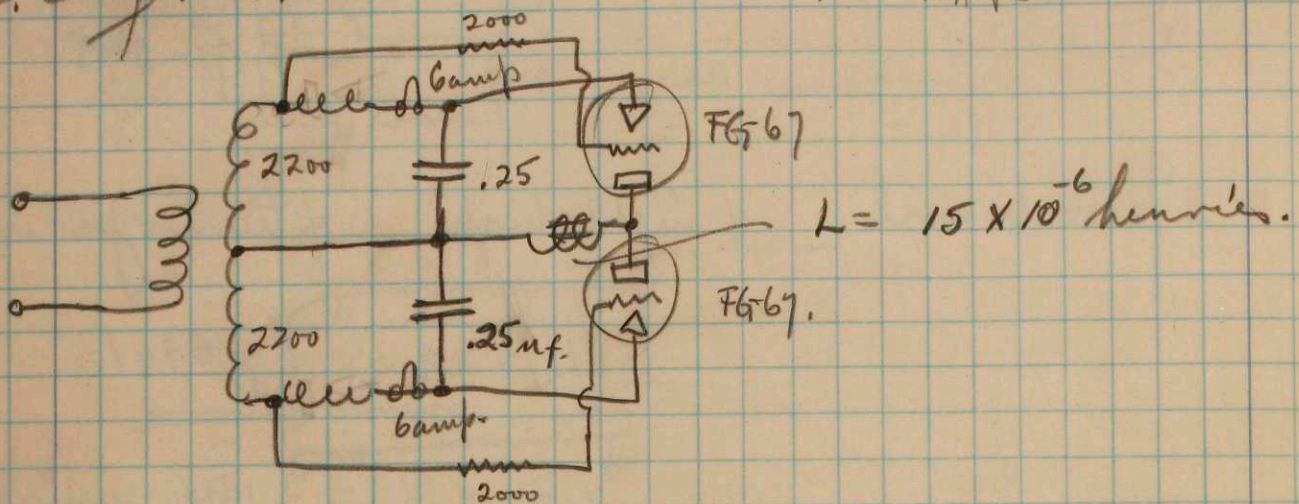 2000
6amp
FG-67
2200
.25
L = 15 X 10^-6 henries.
FG-67.
2200
.25 uf.
6amp.
2000